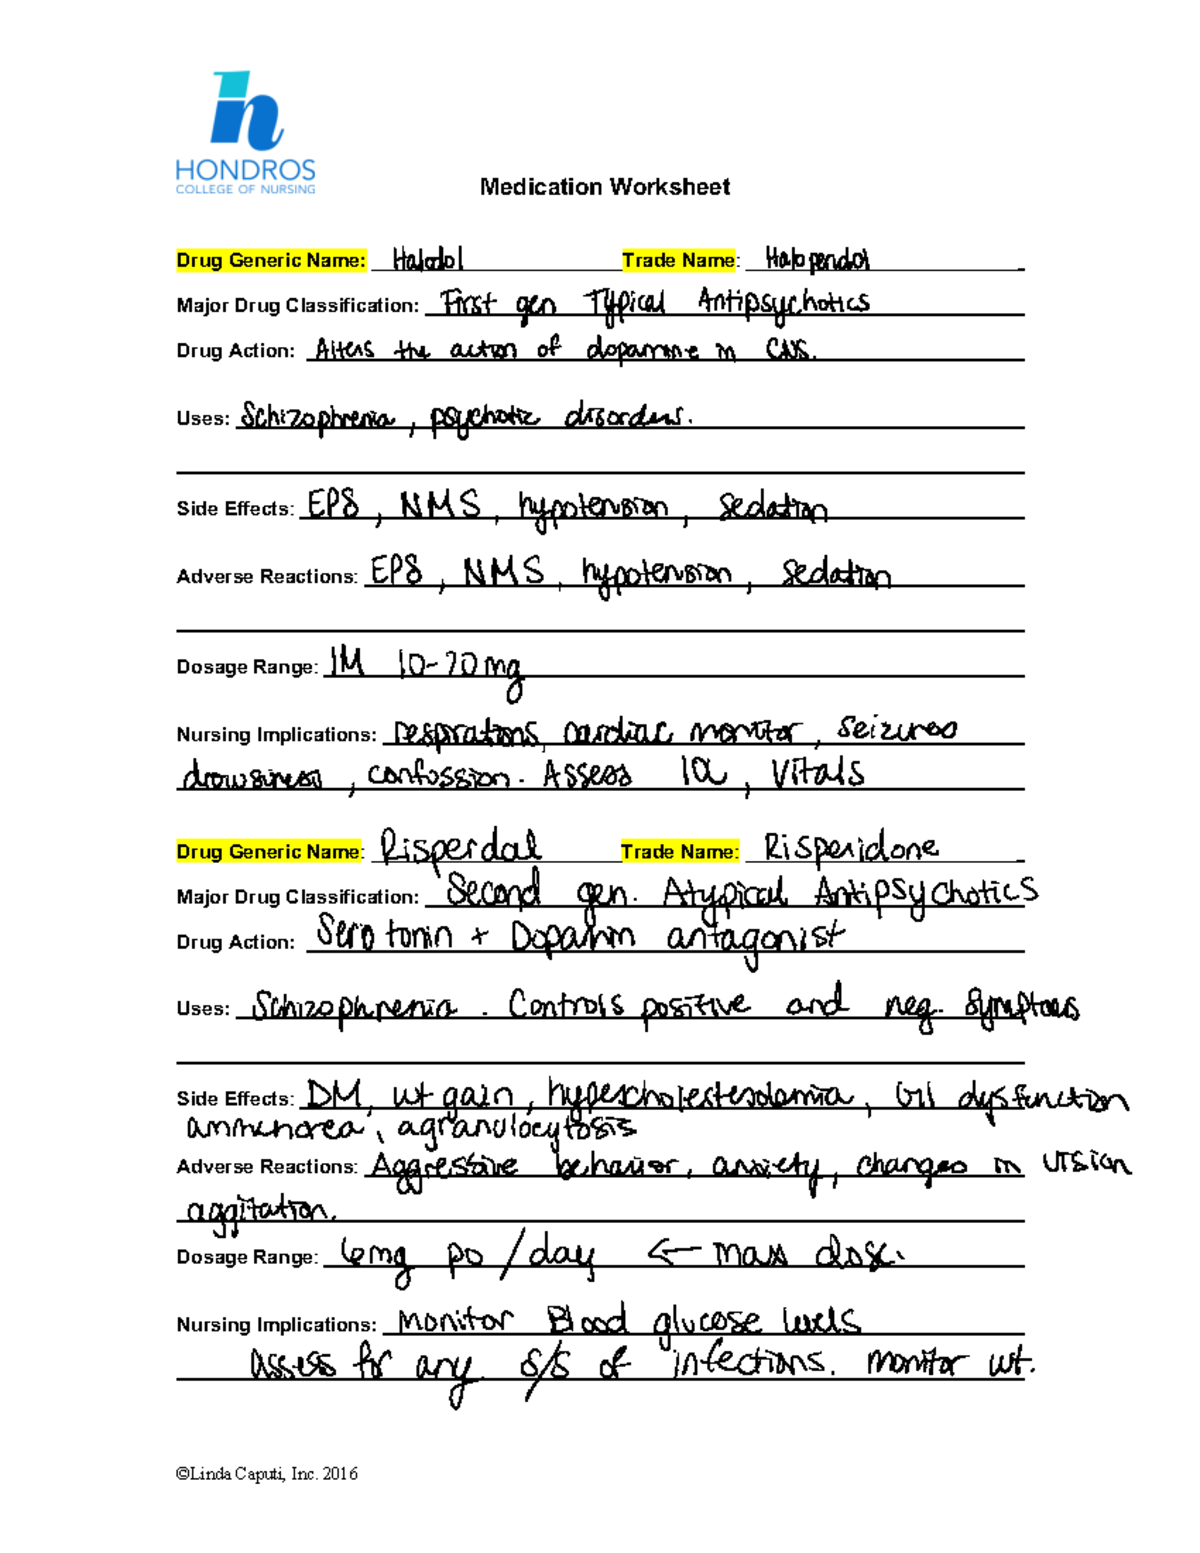 HONDROS
COLLEGE OF NURSING
Medication Worksheet
Drug Generic Name: Halodol Trade Name: Halopendol
Major Drug Classification: First gen Typical Antipsychotics
Drug Action: Alters the action of dopamine in CNS.
Uses: Schizophrenia, psychotic disorders.
Side Effects: EPS, NMS, hypotension, sedation
Adverse Reactions: EPS, NMS, hypotension, sedation
Dosage Range: IM 10-20mg
Nursing Implications: respirations, cardiac monitor, seizures
drowsiness, confussion. Assess I&O, Vitals
Drug Generic Name: Risperdal Trade Name: Risperidone
Major Drug Classification: Second gen. Atypical Antipsychotics
Drug Action: Serotonin + Dopamin antagonist
Uses: Schizophrenia. Controls positive and neg. Symptoms
Side Effects: DM, wt gain, hypercholesterolemia, GU dysfunction
ammenorea, agranulocytosis
Adverse Reactions: Aggressive behavior, anxiety, changes in vision
aggitation.
Dosage Range: 6mg po/day ← max dose.
Nursing Implications: Monitor Blood glucose levels
assess for any s/s of infections. monitor wt.
©Linda Caputi, Inc. 2016